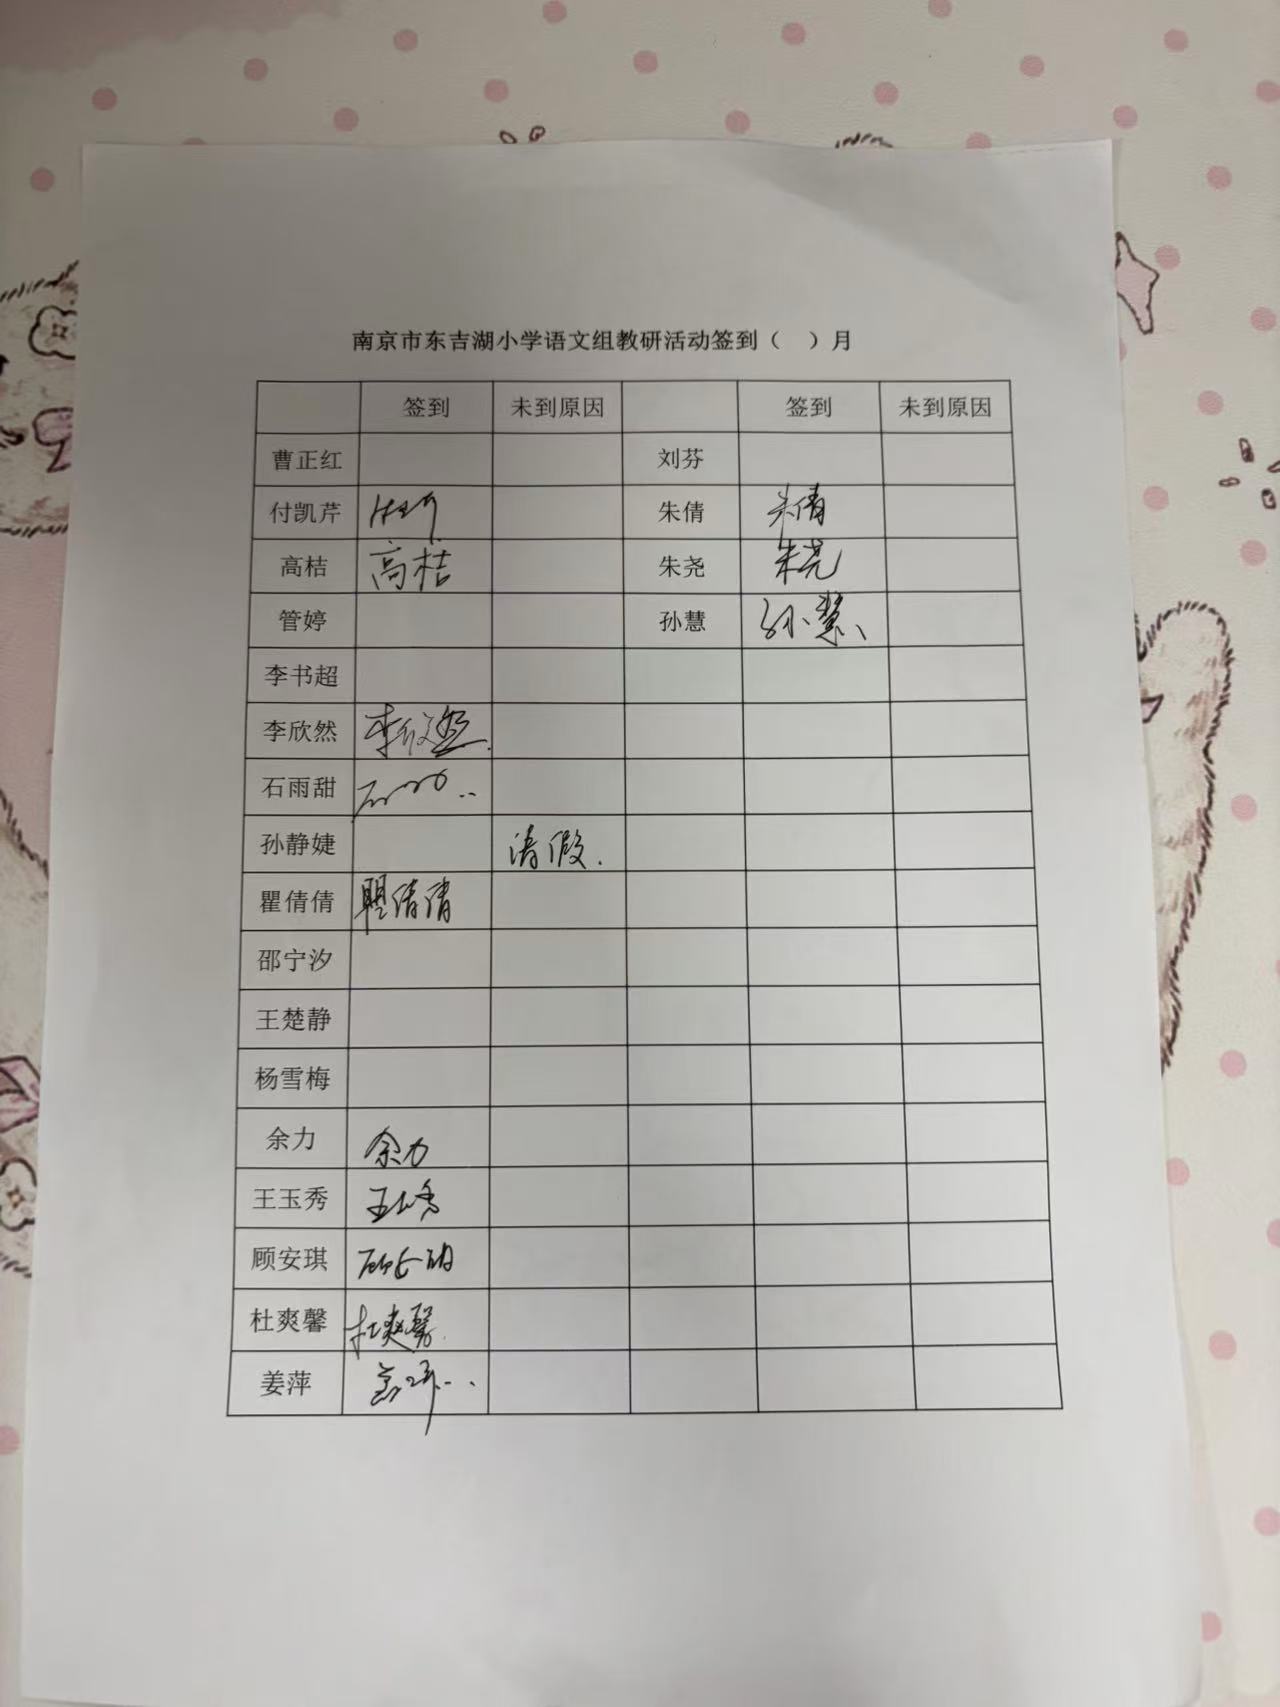 南京市东吉湖小学语文组教研活动签到（ ）月
签到 未到原因 签到 未到原因
曹正红 刘芬
付凯芹 朱倩 朱倩
高桔 高桔 朱尧 朱尧
管婷 孙慧 孙慧
李书超
李欣然 李欣然
石雨甜
孙静婕 请假.
瞿倩倩 瞿倩倩
邵宁汐
王楚静
杨雪梅
余力 余力
王玉秀 王玉秀
顾安琪
杜爽馨 杜爽馨
姜萍